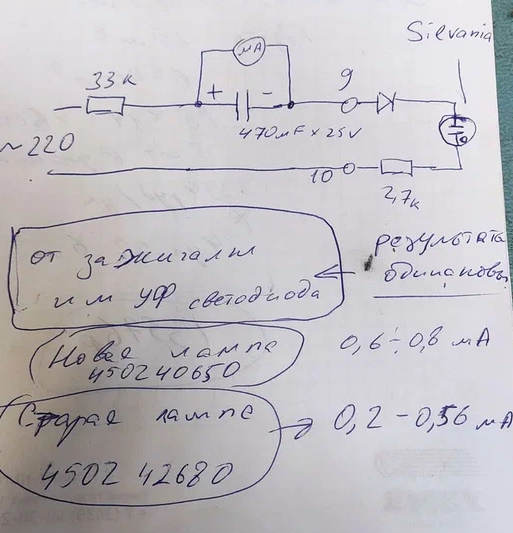 Silvania
мА
33к
+ -
9
470мF x 25V
~220
10
2,7к
от зажигалки
или УФ светодиода
результаты
одинаковы
Новая лампа
450240650
0,6÷0,8 мА
Старая лампа
4502 42680
0,2 - 0,56 мА